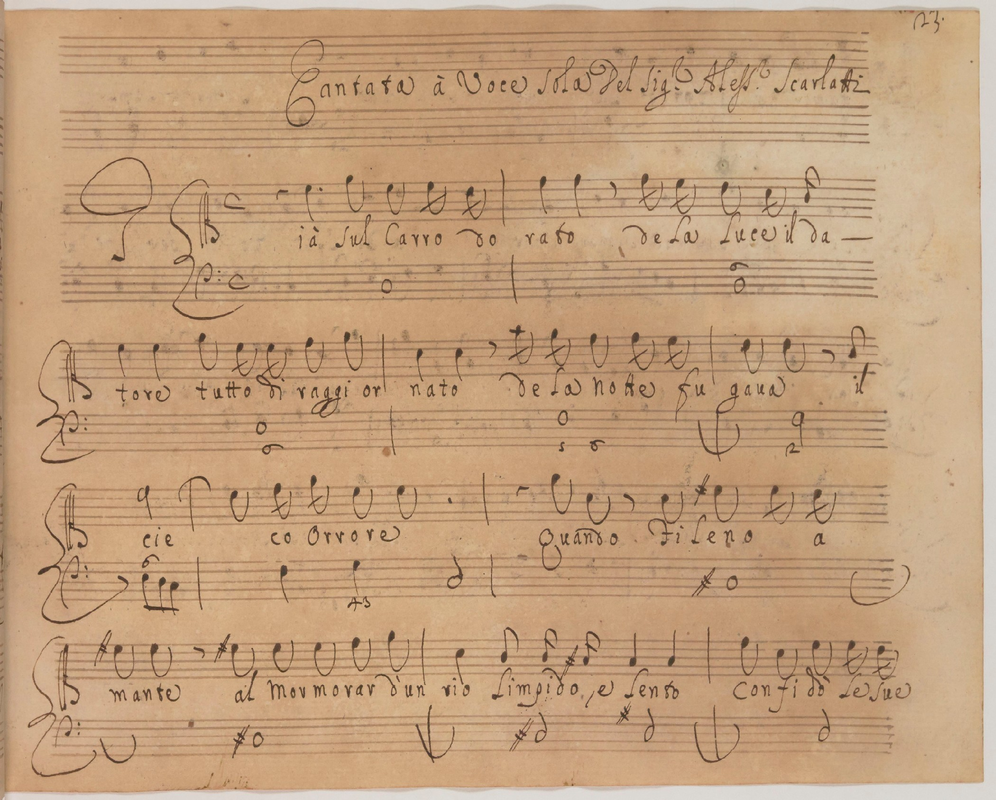 23.
Cantata à Voce Sola Del Sig.r Aless.o Scarlatti
ià sul Carro do rato de la Luce il da —
tore tutto di raggi or nato de la Notte fu gaua il
cie co Orrore Quando Fileno a
mante al Mormorar d'un rio Limpido, e Lento Confidò le sue